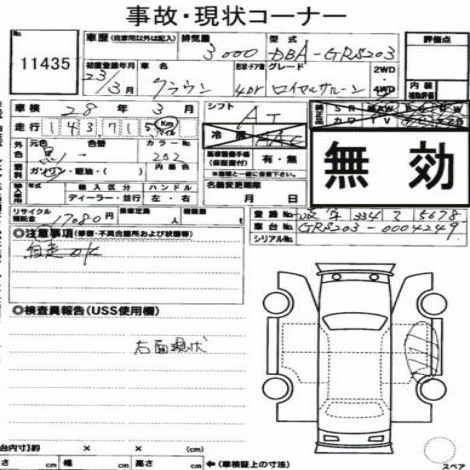 事故・現状コーナー
No. 11435
車歴 (自家用以外は記入) 排気量 3000 型式 DBA-GRS203 評価点
初度登録年月 23/3月 車名 クラウン 形状・ドア数 4DR グレード ロイヤルサルーン 2WD・4WD
内装
補助評価
車検 28年3月 シフト AT
走行 143715 Km 冷房 AAC
外装色 元色 黒 色替 カラーNo. 202 有・無
燃料 ガソリン・軽油・( ) 無効
輸入区分 ハンドル
ディーラー・並行 左・右 名義変更期限 月 日
リサイクル預託金 17080円 乗車定員 人 積載量 t 登録No. 334 5678
◎注意事項(修復・不具合箇所および状態等) 車台No. GRS203-0004249
自走OK シリアルNo.
◎検査員報告(USS使用欄)
右面現状
台内寸)約 × × cm
さ cm 幅 cm 高さ cm ←(車検証上の寸法) スペア